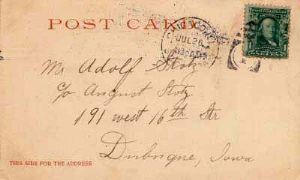 POST CARD
JUL 26
Mr Adolf Stotz
c/o August Stotz
191 west 16th Str
Dubuque, Iowa
THIS SIDE FOR THE ADDRESS